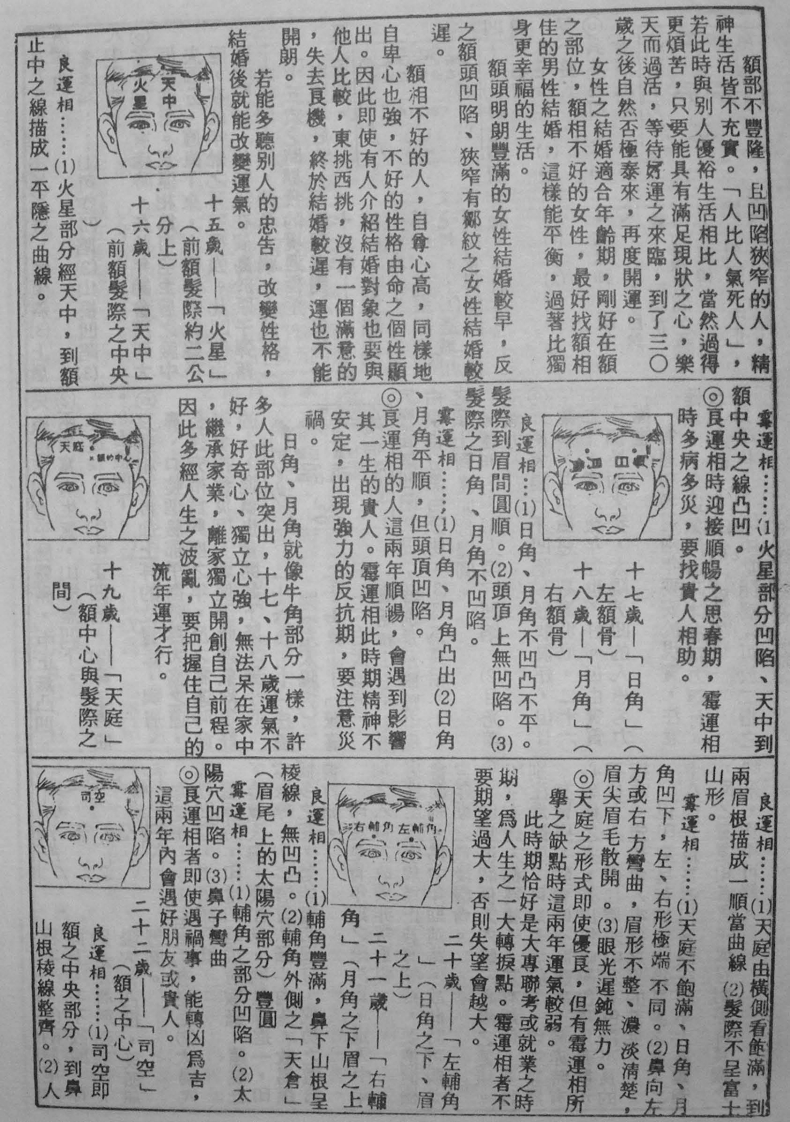 額部不豐隆，且凹陷狹窄的人，精
神生活皆不充實。「人比人氣死人」，
若此時與別人優裕生活相比，當然過得
更煩苦，只要能具有滿足現狀之心，樂
天而過活，等待好運之來臨，到了三〇
歲之後自然否極泰來，再度開運。
女性之結婚適合年齡期，剛好在額
之部位，額相不好的女性，最好找額相
佳的男性結婚，這樣能平衡，過著比獨
身更幸福的生活。
額頭明朗豐滿的女性結婚較早，反
之額頭凹陷、狹窄有鄒紋之女性結婚較
遲。
額相不好的人，自尊心高，同樣地
自卑心也強，不好的性格由命之個性顯
出。因此即使有人介紹結婚對象也要與
他人比較，東挑西挑，沒有一個滿意的
，失去良機，終於結婚較遲，運也不能
開朗。
若能多聽別人的忠告，改變性格，
結婚後就能改變運氣。
天中
火星
十五歲——「火星」
（前額髮際約二公
分上）
十六歲——「天中」
（前額髮際之中央
）
良運相……⑴火星部分經天中，到額
止中之線描成一平隱之曲線。
霉運相……⑴火星部分凹陷、天中到
額中央之線凸凹。
◎良運相時迎接順暢之思春期，霉運相
時多病多災，要找貴人相助。
十七歲——「日角」（
左額骨）
十八歲——「月角」（
右額骨）
良運相…⑴日角、月角不凹凸不平。
髮際到眉間圓順。⑵頭頂上無凹陷。⑶
髮際之日角、月角不凹陷。
霉運相……⑴日角、月角凸出⑵日角
、月角平順，但頭頂凹陷。
◎良運相的人這兩年順暢，會遇到影響
其一生的貴人。霉運相此時期精神不
安定，出現強力的反抗期，要注意災
禍。
日角、月角就像牛角部分一樣，許
多人此部位突出，十七、十八歲運氣不
好，好奇心、獨立心強，無法呆在家中
，繼承家業，離家獨立開創自己前程。
因此多經人生之波亂，要把握住自己的
流年運才行。
天庭
額的中心
十九歲——「天庭」
（額中心與髮際之
間）
良運相……⑴天庭由橫側看飽滿，到
兩眉根描成一順當曲線⑵髮際不呈富士
山形。
霉運相……⑴天庭不飽滿、日角、月
角凹下，左、右形極端不同。⑵鼻向左
方或右方彎曲，眉形不整、濃淡清楚，
眉尖眉毛散開。⑶眼光遲鈍無力。
◎天庭之形式即使優良，但有霉運相所
擧之缺點時這兩年運氣較弱。
此時期恰好是大專聯考或就業之時
期，爲人生之一大轉捩點。霉運相者不
要期望過大，否則失望會越大。
右輔角
左輔角
二十歲——「左輔角
」（日角之下、眉
之上）
二十一歲——「右輔
角」（月角之下眉之上
良運相……⑴輔角豐滿，鼻下山根呈
稜線，無凹凸。⑵輔角外側之「天倉」
（眉尾上的太陽穴部分）豐圓
霉運相……⑴輔角之部分凹陷。⑵太
陽穴凹陷。⑶鼻子彎曲
◎良運相者即使遇禍事，能轉凶爲吉，
這兩年內會遇好朋友或貴人。
司空
二十二歲——「司空」
（額之中心）
良運相……⑴司空即
額之中央部分，到鼻
山根稜線整齊。⑵人